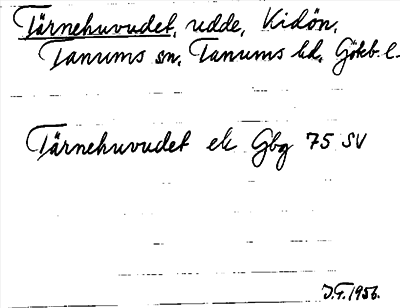 Tärnehuvudet, udde, Kidön,
Tanums sn, Tanums hd, Gökb. l.
Tärnehuvudet ek Gbg 75 SV
J.G. 1956.